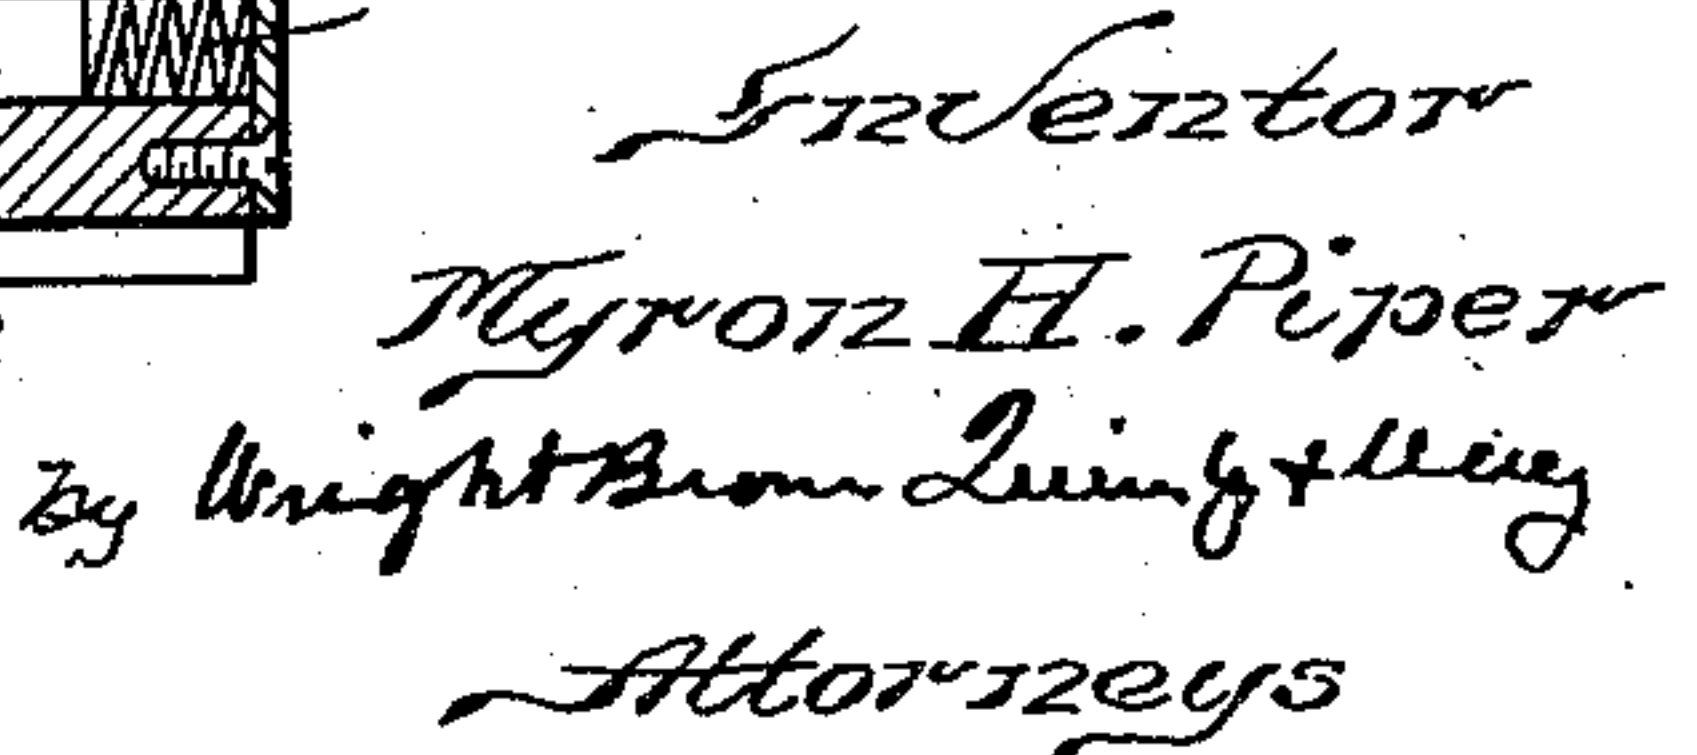 Inventor
Myron H. Piper
by Wright Brown Quinby & May
Attorneys